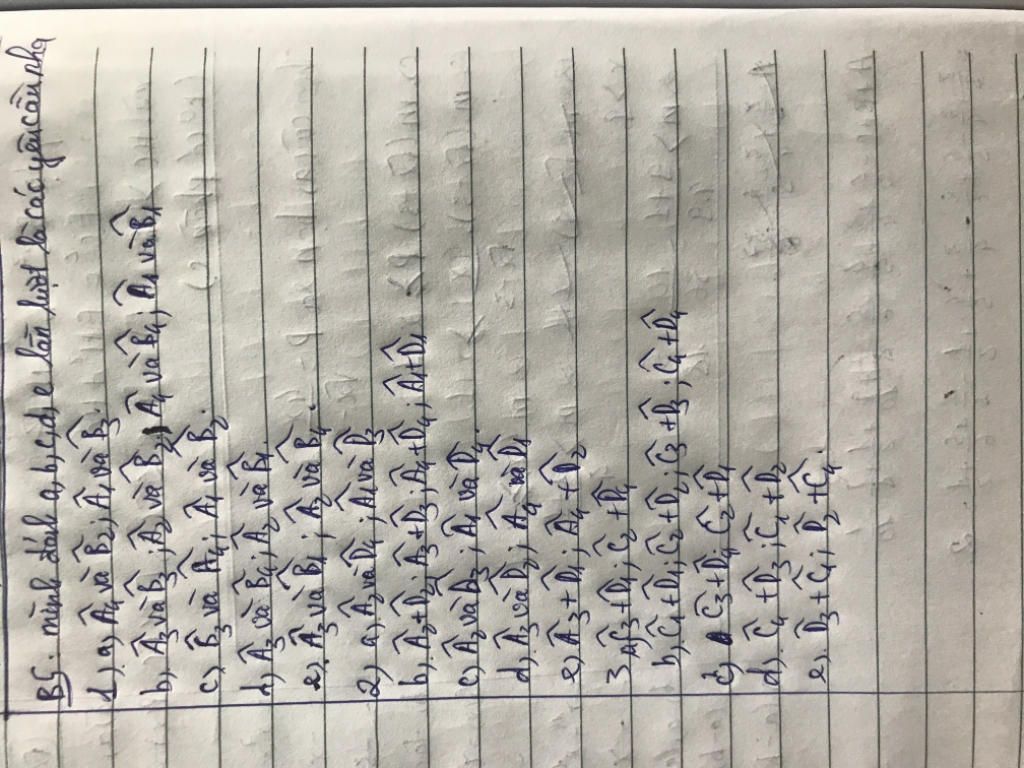 B5: mình đánh a, b, c, d, e lần lượt là các yêu cầu nha
1). a) Â₄ và B̂₂; Â₁ và B̂₃.
b). Â₃ và B̂₃; Â₂ và B̂₂; Â₄ và B̂₄; Â₁ và B̂₁
c) B̂₃ và Â₄; Â₁ và B̂₂.
d). Â₃ và B̂₄; Â₂ và B̂₁.
e). Â₃ và B̂₁; Â₂ và B̂₄.
2) a) Â₂ và D̂₄; Â₁ và D̂₃
b). Â₂+D̂₂; Â₃+D̂₃; Â₄+D̂₄; Â₁+D̂₁
c) Â₂ và D̂₃; Â₁ và D̂₄.
d). Â₃ và D̂₂; Â₄ và D̂₁
e) Â₃ + D̂₁; Â₄ + D̂₂
3 a) Ĉ₃+D̂₁; Ĉ₂ + D̂₄
b) Ĉ₁+D̂₁; Ĉ₂+D̂₂; Ĉ₃+D̂₃; Ĉ₄+D̂₄
c) Ĉ₃+D̂₄; Ĉ₂+D̂₁
d). Ĉ₄ + D̂₃; Ĉ₁ + D̂₂
e). D̂₃ + Ĉ₁; D̂₂ + Ĉ₄.